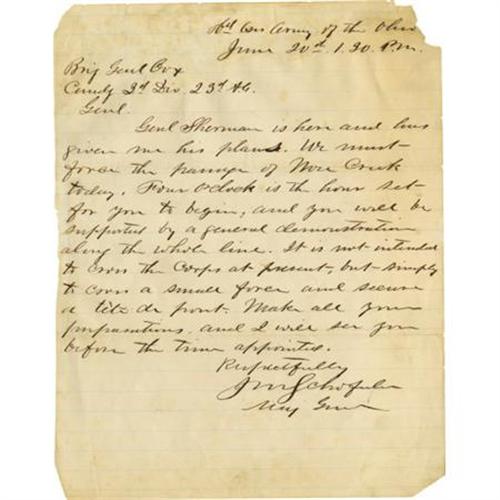 Hd Qrs Army of the Ohio
June 20th 1.30 P.M.
Brig Genl Cox
Comdg 3d Div. 23d A.C.
Genl.
Genl Sherman is here and has
given me his plans. We must
force the passage of Noses Creek
today. Four O'clock is the hour set
for you to begin, and you will be
supported by a general demonstration
along the whole line. It is not intended
to cross the Corps at present, but simply
to cross a small force and secure
a tête de pont. Make all your
preparations, and I will see you
before the time appointed.
Respectfully
J M Schofield
Maj Genl